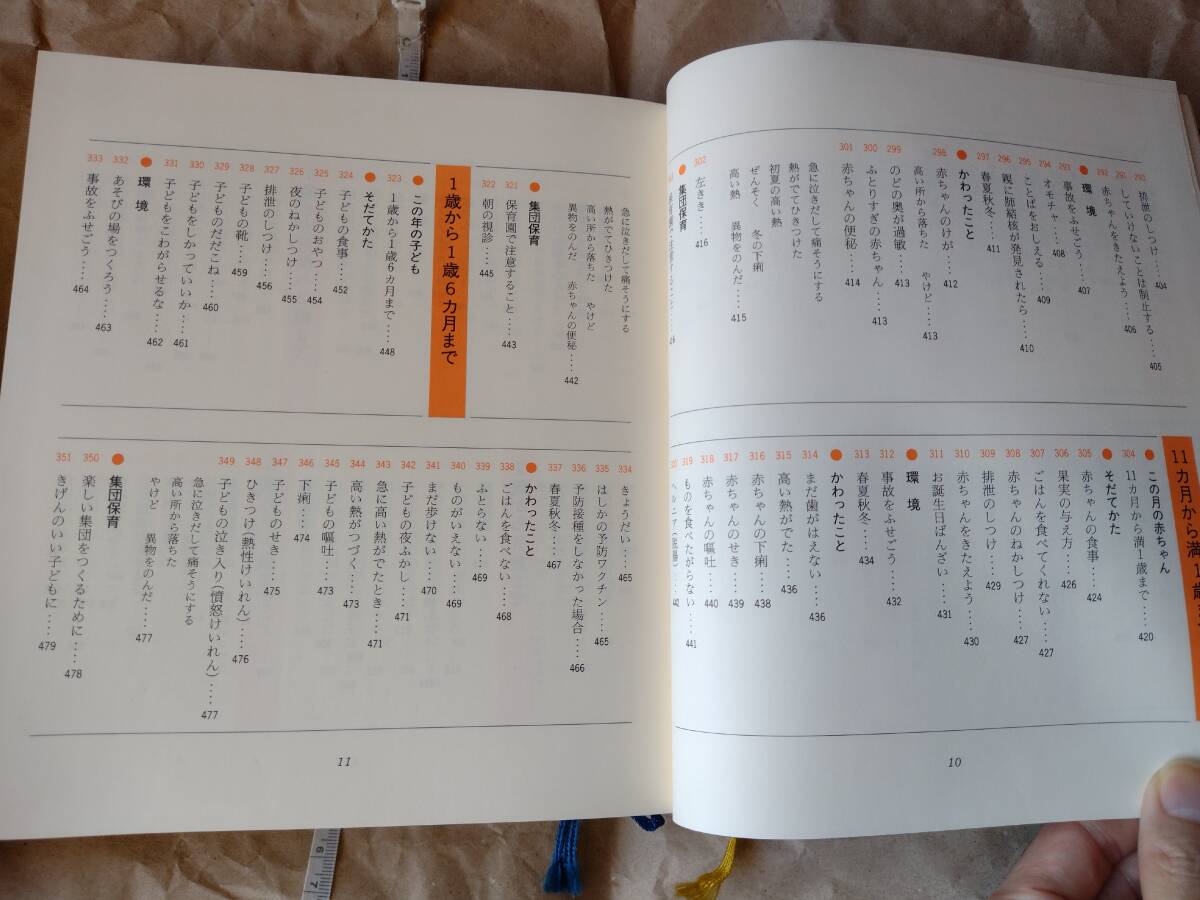 290 初泄のしつけ‥‥404
291 していけないことは制止する‥‥405
292 赤ちゃんをきたえよう‥‥406
●環 境
293 事故をふせごう‥‥407
294 オモチャ‥‥408
295 ことばをおしえる‥‥409
296 親に肺結核が発見されたら‥‥410
297 春夏秋冬‥‥411
●かわったこと
298 赤ちゃんのけが‥‥412
高い所から落ちた やけど‥‥413
299 のどの奥が過敏‥‥413
300 ふとりすぎの赤ちゃん‥‥413
301 赤ちゃんの便秘‥‥414
急に泣きだして痛そうにする
熱がでてひきつけた
初夏の高い熱
ぜんそく 冬の下痢
高い熱 異物をのんだ‥‥415
302 左きき‥‥416
●集団保育
11カ月から満1歳
●この月の赤ちゃん
304 11カ月から満1歳まで‥‥420
●そだてかた
305 赤ちゃんの食事‥‥424
306 果実の与え方‥‥426
307 ごはんを食べてくれない‥‥427
308 赤ちゃんのねかしつけ‥‥427
309 排泄のしつけ‥‥429
310 赤ちゃんをきたえよう‥‥430
311 お誕生日ばんざい‥‥431
●環 境
312 事故をふせごう‥‥432
313 春夏秋冬‥‥434
●かわったこと
314 まだ歯がはえない‥‥436
315 高い熱がでた‥‥436
316 赤ちゃんの下痢‥‥438
317 赤ちゃんのせき‥‥439
318 赤ちゃんの嘔吐‥‥440
319 ものを食べたがらない‥‥441
10
急に泣きだして痛そうにする
熱がでてひきつけた
高い所から落ちた やけど
異物をのんだ 赤ちゃんの便秘‥‥442
●集団保育
321 保育園で注意すること‥‥443
322 朝の視診‥‥445
1歳から1歳6カ月まで
●この年の子ども
323 1歳から1歳6カ月まで‥‥448
●そだてかた
324 子どもの食事‥‥452
325 子どものおやつ‥‥454
326 夜のねかしつけ‥‥455
327 排泄のしつけ‥‥456
328 子どもの靴‥‥459
329 子どものだだこね‥‥460
330 子どもをしかっていいか‥‥461
331 子どもをこわがらせるな‥‥462
●環 境
332 あそびの場をつくろう‥‥463
333 事故をふせごう‥‥464
334 きょうだい‥‥465
335 はしかの予防ワクチン‥‥465
336 予防接種をしなかった場合‥‥466
337 春夏秋冬‥‥467
●かわったこと
338 ごはんを食べない‥‥468
339 ふとらない‥‥469
340 ものがいえない‥‥469
341 まだ歩けない‥‥470
342 子どもの夜ふかし‥‥471
343 急に高い熱がでたとき‥‥471
344 高い熱がつづく‥‥473
345 子どもの嘔吐‥‥473
346 下痢‥‥474
347 子どものせき‥‥475
348 ひきつけ(熱性けいれん)‥‥476
349 子どもの泣き入り(憤怒けいれん)‥‥477
急に泣きだして痛そうにする
高い所から落ちた
やけど 異物をのんだ‥‥477
●集団保育
350 楽しい集団をつくるために‥‥478
351 きげんのいい子どもに‥‥479
11